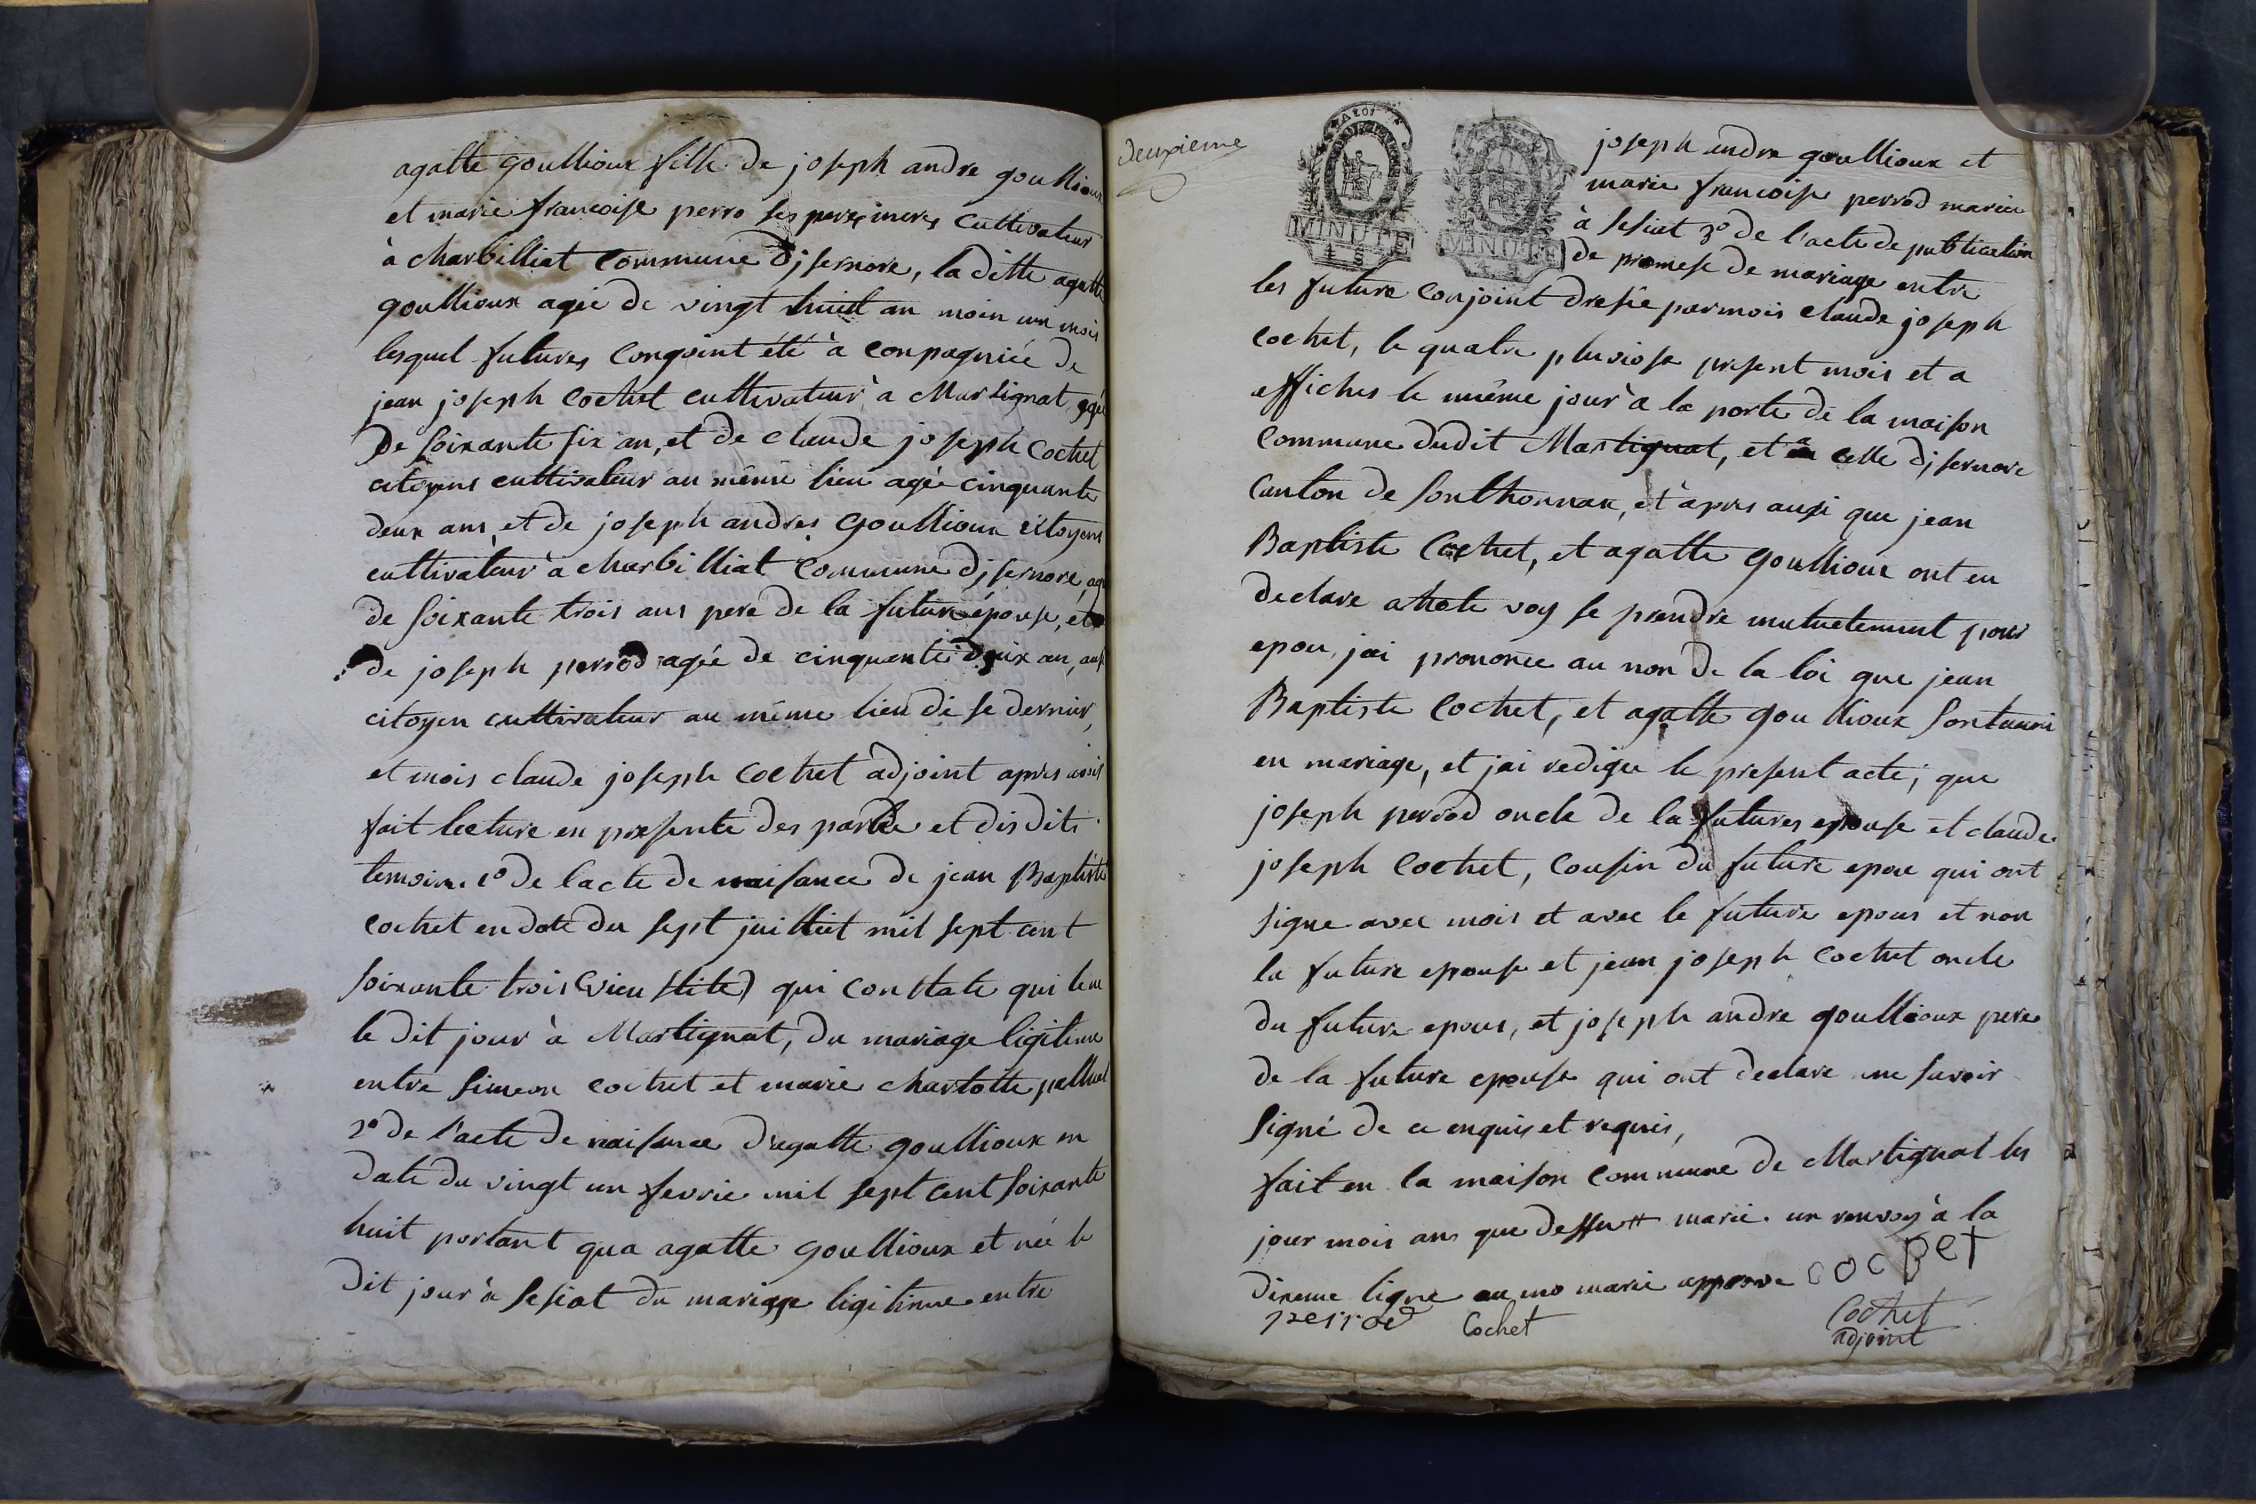 agatte goullioux fille de joseph andre goullioux
et marie francoise perro ses pere, meres cultivateur
à charbilliat commune djsernore, la ditte agatte
goullioux agée de vingt huit an moin un mois
lesquel futures congoint été à conpagniée de
jean joseph cochet cultivateur à Martignat agé
De soixante six an, et de claude joseph cochet
citoyens cultivateur au même lieu agée cinquante
deux ans, et de joseph andres goullioux citoyens
cultivateur à charbilliat commune djsernore, agé
de soixante trois ans pere de la future épouse, et
de joseph perrod agée de cinquante
citoyen cultivateur au même lieu di se dernier,
et mois claude joseph cochet adjoint apres avoir
fait lecture en presente des partie et disdits
temoin. 1º de lacte de naisance de jean Baptiste
cochet en date du sept juilliet mil sept cent
soixante trois (vieu stite) qui constate qui
le dit jour à Martignat, du mariage ligitime
entre simeon cochet et marie charlotte
2º de l'acte de naisance d'agatte goullioux en
date du vingt un fevrie mil sept cent soixante
huit portant qua agatte goullioux et née le
dit jour à sesiat du mariage ligitinue entre
deuxieme
MINUTE
MINUTE
joseph andre goullioux et
marie francoise perrod mariée
à sesiat 3º de l'acte de publication
de promese de mariage entre
les future conjoint dresée par mois claude joseph
cochet, le quatre pluviose present mois et a
affiches le même jour à la porte de la maison
commune dudit Martignat, et a celle djsernore
canton de sonthonnax, et àpres ausi que jean
Baptiste Cochet, et agatte goullioux ont eu
declare a hote voy se prendre mutuelement pour
epou, jai prononcee au non de la loi que jean
Baptiste cochet, et agatte goullioux sont uni
en mariage, et jai redigee le present acte; que
joseph perrod oncle de la futures epouse et claude
joseph cochet, cousin du future epou qui ont
signe avec mois et avec le future epous et non
la future epouse et jean joseph cochet oncle
du future epous, et joseph andre goullioux pere
de la future epouse qui ont declare ne savoir
signé de ce enquis et requis,
fait en la maison commune de Martignat les
jour mois ans que dessus # marie. un renvoy à la
dixeme ligne au mo marie approuve cochet
perrod Cochet Cochet
adjoint